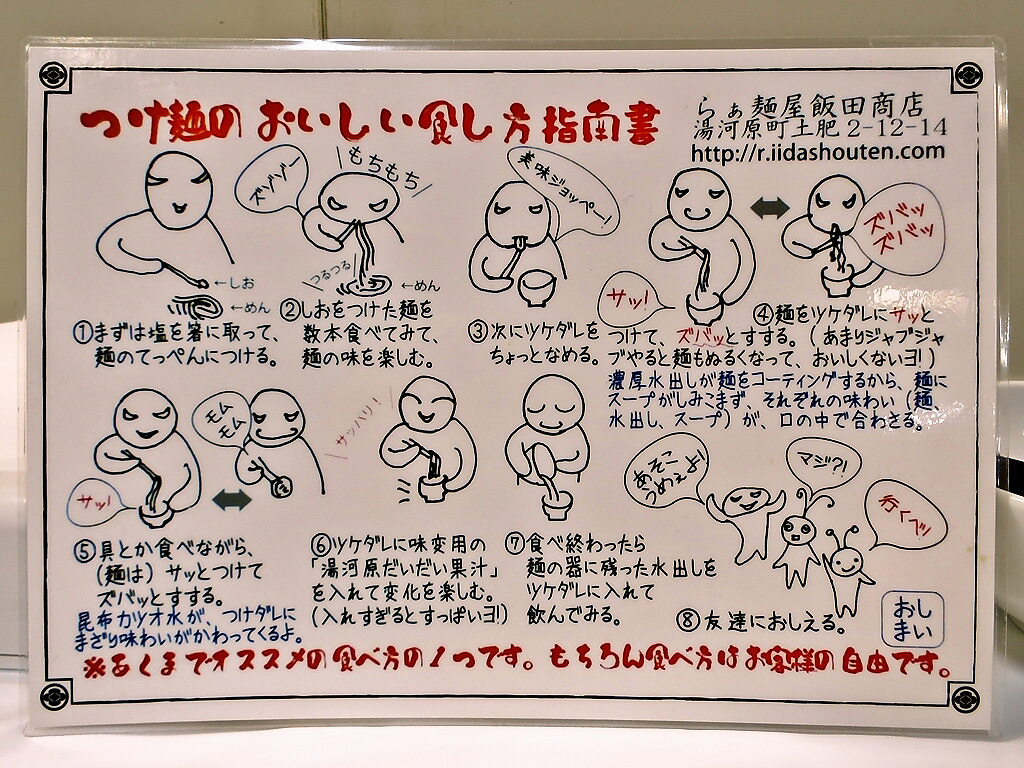 つけ麺のおいしい食し方指南書
らぁ麺屋飯田商店
湯河原町土肥2-12-14
http://r.iidashouten.com
←しお
←めん
①まずは塩を箸に取って、
麺のてっぺんにつける。
ズゾゾー
もちもち
つるつる
←めん
②しおをつけた麺を
数本食べてみて、
麺の味を楽しむ。
美味ジョッペー!
③次にツケダレを
ちょっとなめる。
サッ!
ズバッ
ズバッ
④麺をツケダレにサッと
つけて、ズバッとすする。(あまりジャブジャ
ブやると麺もぬるくなって、おいしくないヨ!)
濃厚水出しが麺をコーティングするから、麺に
スープがしみこまず、それぞれの味わい(麺、
水出し、スープ)が、口の中で合わさる。
サッ!
モム
モム
⑤具とか食べながら、
(麺は)サッとつけて
ズバッとすする。
昆布カツオ水が、つけダレに
まざり味わいがかわってくるよ。
サッハリ!
⑥ツケダレに味変用の
「湯河原だいだい果汁」
を入れて変化を楽しむ。
(入れすぎるとすっぱいヨ!)
⑦食べ終わったら
麺の器に残った水出しを
ツケダレに入れて
飲んでみる。
あそこ
うめぇよ!
マジ?!
行くブッ
⑧友達におしえる。
おし
まい
※あくまでオススメの食べ方の1つです。もちろん食べ方はお客様の自由です。